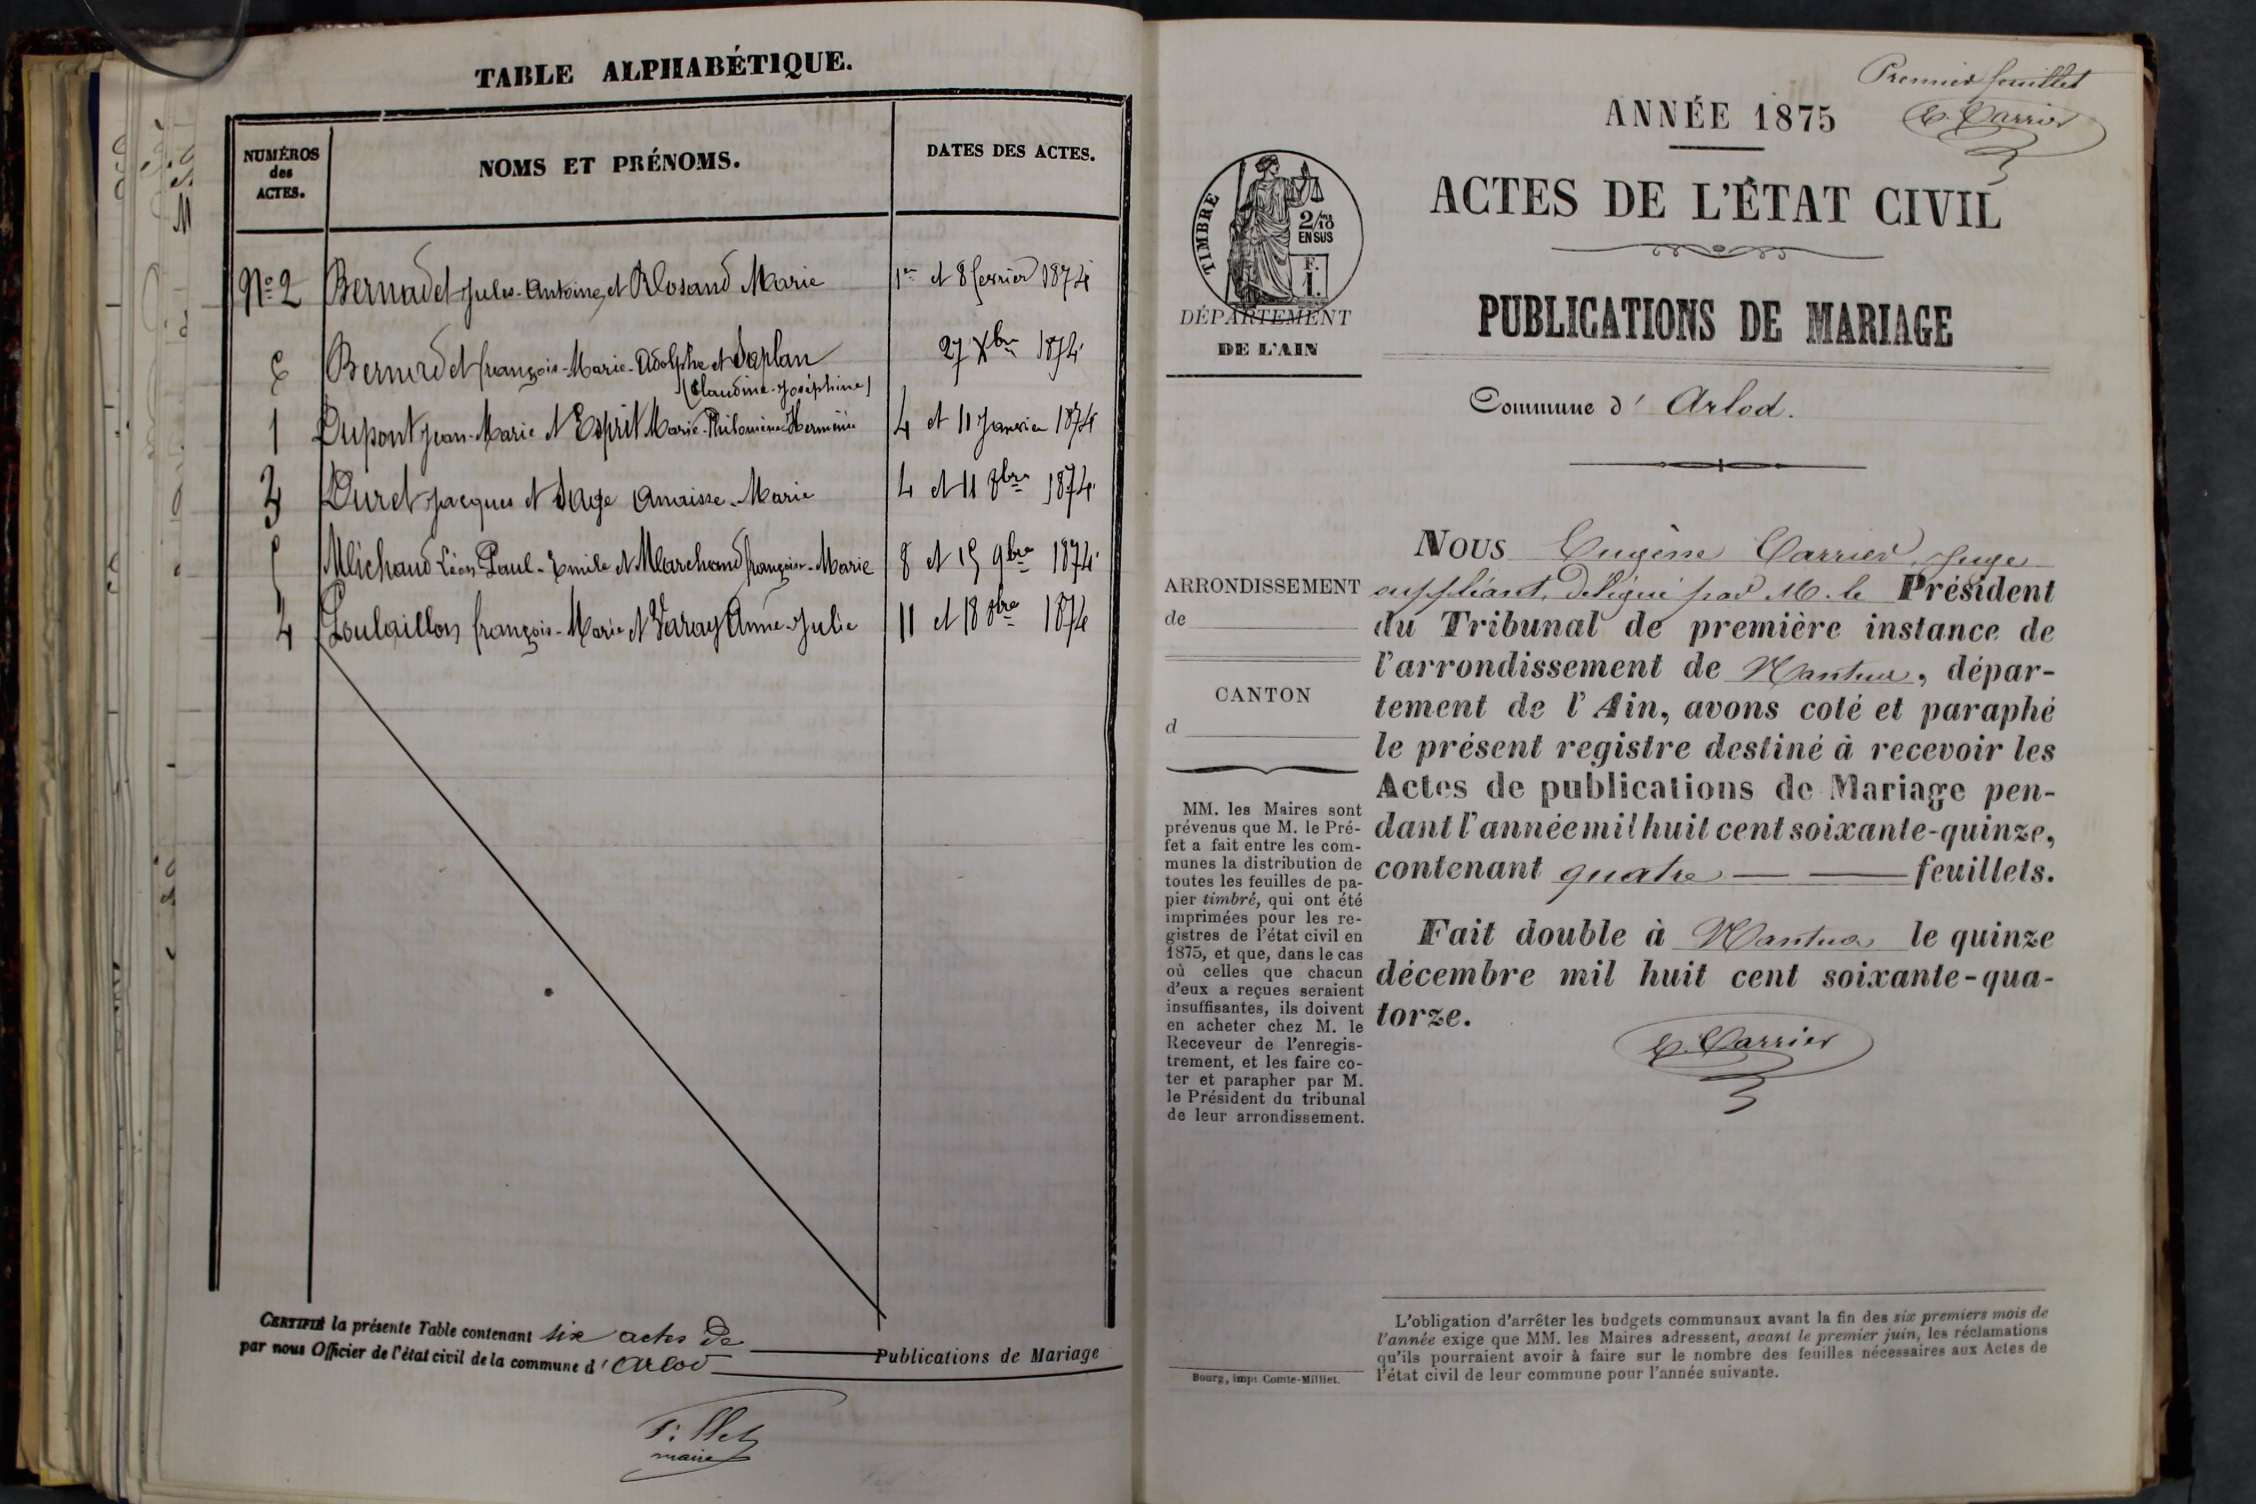 TABLE ALPHABÉTIQUE.
NUMÉROS
des
ACTES.
NOMS ET PRÉNOMS.
DATES DES ACTES.
No 2 Bernadet Jules-Antoine et Rosand Marie 1er et 8 fevrier 1874
6 Bernadet françois-Marie-Adolphe et Saplan 27 Xbre 1874
(Claudine-Joséphine)
1 Dupont Jean-Marie et Esprit Marie-Philomène 4 et 11 Janvier 1874
3 Duret Jacques et Sage Marie 4 et 11 8bre 1874
5 Michaud Léon-Paul-Emile et Marchand françoise-Marie 8 et 15 9bre 1874
4 Poulaillon françois-Marie et Varay Anne-Julie 11 et 18 8bre 1874
CERTIFIÉ la présente Table contenant six actes de
Publications de Mariage
par nous Officier de l'état civil de la commune d' Arlod
maire
Premier feuillet
E. Carrier
ANNÉE 1875
ACTES DE L'ÉTAT CIVIL
TIMBRE
2/10
EN SUS
F.
1.
DÉPARTEMENT
DE L'AIN
PUBLICATIONS DE MARIAGE
Commune d' Arlod.
ARRONDISSEMENT
de
CANTON
d
MM. les Maires sont
prévenus que M. le Pré-
fet a fait entre les com-
munes la distribution de
toutes les feuilles de pa-
pier timbré, qui ont été
imprimées pour les re-
gistres de l'état civil en
1875, et que, dans le cas
où celles que chacun
d'eux a reçues seraient
insuffisantes, ils doivent
en acheter chez M. le
Receveur de l'enregis-
trement, et les faire co-
ter et parapher par M.
le Président du tribunal
de leur arrondissement.
NOUS Eugène Carrier, Juge
suppléant, délégué par M. le Président
du Tribunal de première instance de
l'arrondissement de Nantua, dépar-
tement de l'Ain, avons coté et paraphé
le présent registre destiné à recevoir les
Actes de publications de Mariage pen-
dant l'année mil huit cent soixante-quinze,
contenant quatre feuillets.
Fait double à Nantua le quinze
décembre mil huit cent soixante-qua-
torze.
E. Carrier
Bourg, impr. Comte-Milliet.
L'obligation d'arrêter les budgets communaux avant la fin des six premiers mois de
l'année exige que MM. les Maires adressent, avant le premier juin, les réclamations
qu'ils pourraient avoir à faire sur le nombre des feuilles nécessaires aux Actes de
l'état civil de leur commune pour l'année suivante.